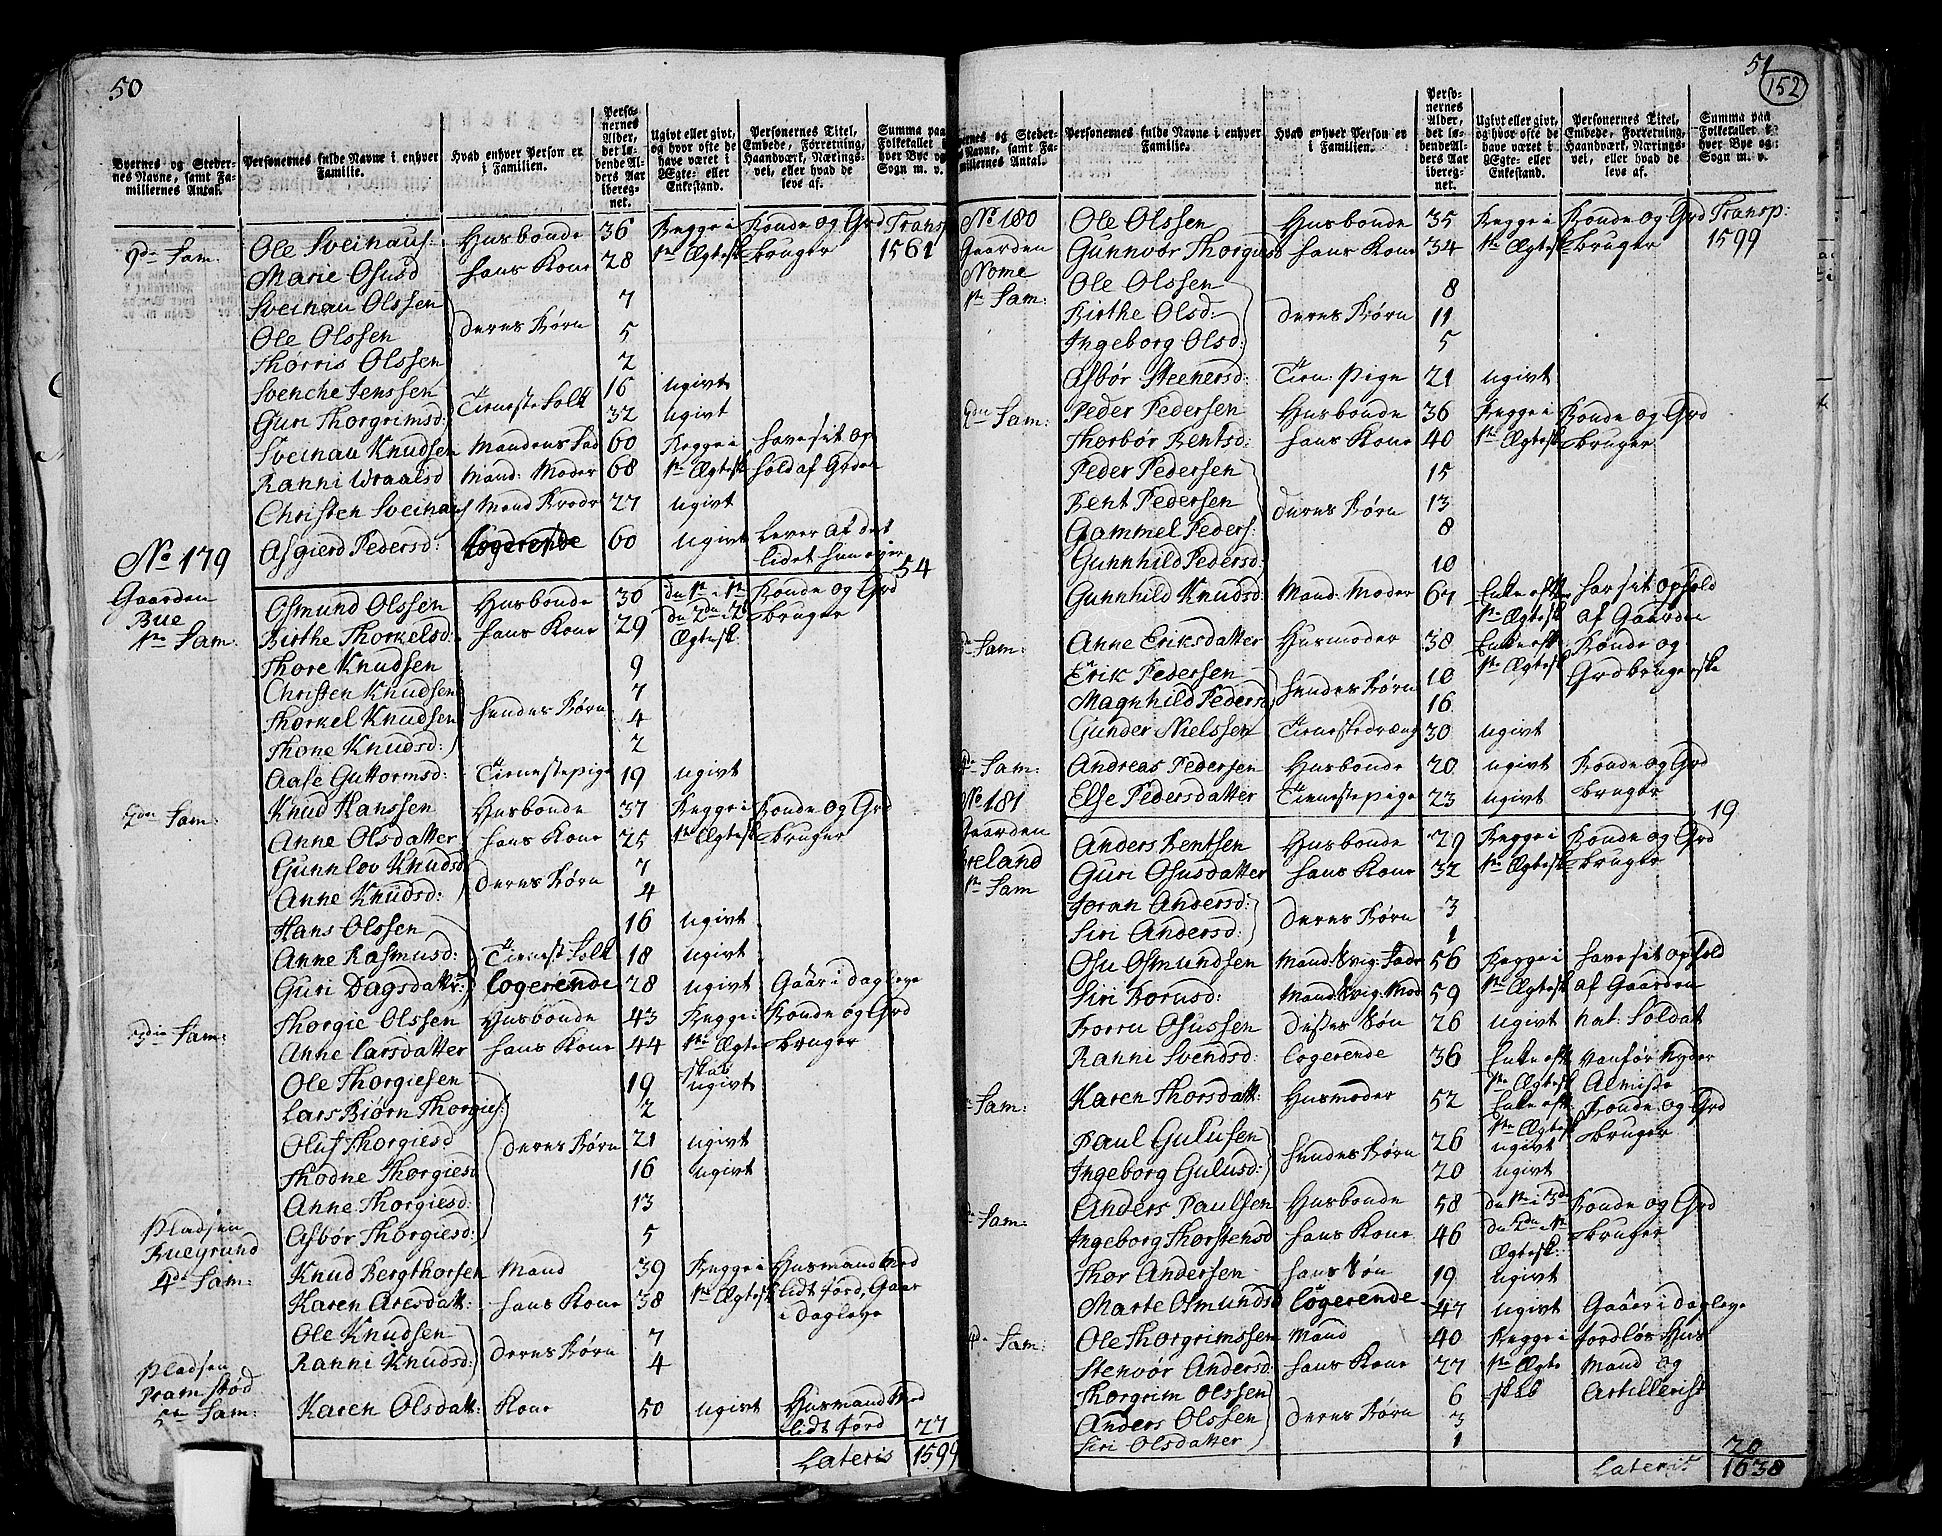 50
Byernes og Steder-
nes Navne, samt Fa-
miliernes Antal.
Personernes fulde Navne i enhver
Familie.
Hvad enhver Person er
i Familien.
Perso-
nernes
Alder,
det lø-
bende Al-
ders Aar
ibereg-
net.
Ugivt eller givt,
og hvor ofte de
have været i
Ægte- eller
Enkestand.
Personernes Titel,
Embede, Forretning,
Haandværk, Nærings-
vei, eller hvad de
leve af.
Summa paa
Folketallet i
hver Bye og
Sogn m. v.
Fam: Ole Sveinaus: Husbonde 36 Begge i Bonde og Grd Transp
Marie Osusd hans Kone 28 1te Ægtesk bruger 1561
Sveinau Olssen 7
Ole Olssen deres Børn 5
Thorris Olssen 2
Svenche Jenssen 16 ugivt
Guri Thorgrimsd: Tieneste Folk 32 ugivt
Sveinau Knudsen Mandens Fad 60 Begge i have sit op
Ranni Wraalsd Mand: Moder 68 1te Ægtesk hold af Grden
Christen Sveinaus Mand Brodr 27 ugivt
Asgierd Pedersd: Logerende 60 ugivt Lever af det
lidet hun ejer 54
No 179
Gaarden
Bue
1te Fam:
Osmund Olssen Husbonde 30 Bonde og Grd
Birthe Thorkelsd: hans Kone 29 Ægtesk. bruger
Thore Knudsen 9
Christen Knudsen 7
Thorkel Knudsen hendes Børn 4
Thone Knudsd: 2
Aase Guttormsd: Tienestepige 19 ugivt
2den Fam: Knud Hanssen Husbonde 37 Begge i Bonde og Grd
Anne Olsdatter hans Kone 25 1te Ægtesk bruger
Gunnlov Knudsd 7
Anne Knudsd: deres Børn 4
Hans Olssen 16 ugivt
Anne Rasmusd: Tienest: Folk 18 ugivt
Guri Dagsdattr: Logerende 28 ugivt Gaar i dagleye
3die Fam: Thorgie Olssen Husbonde 43 Begge i Bonde og Grd
Anne Larsdatter hans Kone 44 1te Ægte bruger
skab
Ole Thorgiesen 19 ugivt
Lars Biørn Thorgies: 2
Oluf Thorgiesd deres Børn 21 ugivt
Thodne Thorgiesd 16 ugivt
Anne Thorgiesd: 13
Asbør Thorgiesd: 5
Pladsen
Buegrund
4de Fam: Knud Bergthorsen Mand 39 Begge i Husmand Med
Karen Aresdatt: hans Kone 38 1te Ægtesk lidt Jord, Gaar
i Dagleye
Ole Knudsen 7
Ranni Knudsd: deres Børn 4
Pladsen
Pramstød
5te Fam: Karen Olsdatt: Kone 50 ugivt Husmand Med
lidt Jord 27
Lateris 1599
51
152
Byernes og Steder-
nes Navne, samt Fa-
miliernes Antal.
Personernes fulde Navne i enhver
Familie.
Hvad enhver Person er
i Familien.
Perso-
nernes
Alder,
det lø-
bende Al-
ders Aar
ibereg-
net.
Ugivt eller givt,
og hvor ofte de
have været i
Ægte- eller
Enkestand.
Personernes Titel,
Embede, Forretning,
Haandværk, Nærings-
vei, eller hvad de
leve af.
Summa paa
Folketallet i
hver Bye og
Sogn m. v.
No 180 Ole Olssen Husbonde 35 Begge i Bonde og Grd Transp:
Gaarden Gunnvør Thorgiesd hans Kone 34 1te Ægtesk bruger 1599
Nome
1te Fam: Ole Olssen 8
Birthe Olsd: deres Børn 11
Ingeborg Olsd: 5
Asbør Steenersd: Tien: Pige 21 ugivt
2den Fam: Peder Pedersen Husbonde 36 Begge i Bonde og Grd
Thorbør Bentsd: hans Kone 40 1te Ægtesk bruger
Peder Pedersen 15
Bent Pedersen deres Børn 13
Gammel Peders: 8
Gunnhild Pedersd: 10
Gunnhild Knudsd: Mand: Moder 67 Enke eft har sit ophold
1te Ægtesk af Gaarden
Fam: Anne Eriksdatter Husmoder 38 Enke eft Bonde og
Erik Pedersen 10 1te Ægtesk Grdbrugerske
Magnhild Pedersd hendes Børn 16
Gunder Nielssen Tienestedræng 30 ugivt
Fam: Andreas Pedersen Husbonde 20 ugivt Bonde og Grd
Else Pedersdatter Tienestepige 23 ugivt bruger 19
No 181
Gaarden
Breland
1te Fam
Anders Bentsen Husbonde 29 Begge i Bonde og Grd
Guri Osusdatter hans Kone 32 1te Ægtesk bruger
Joran Andersd: 3
Siri Andersd: deres Børn 1
Osu Osmundsen Mand: Svig: Fadr 56 Begge i have sit ophold
Siri Borusd: Mand: Svig: Mod 59 1te Ægtesk af Gaarden
Borru Osussen disses Søn 26 ugivt nat: Soldat
Ranni Svendsd: Logerende 36 Enke eft vanfør Nyder
1te Ægtesk Almisse
Fam: Karen Thorsdatt: Husmoder 52 Enke eft Bonde og Grd
1te Ægtesk bruger
Paul Gulusen 26 ugivt
Ingeborg Gulusd: hendes Børn 20 ugivt
Fam: Anders Paulsen Husbonde 58 Bonde og Grd
Ingeborg Thorstensd hans Kone 46 bruger
Ægtesk:
Thor Andersen hans Søn 19 ugivt
Marte Osmundsd Logerende 47 ugivt Gaaer i dagleye
4de Fam: Ole Thorgrimssen Mand 40 Begge i Jordløs Hus
Stenvør Andersd: hans Kone 27 1te Ægte Mand og
Thorgrim Olssen 6 skab Artillerist
Anders Olssen deres Børn 3
Siri Olsdatter 1
20
Lateris 1638